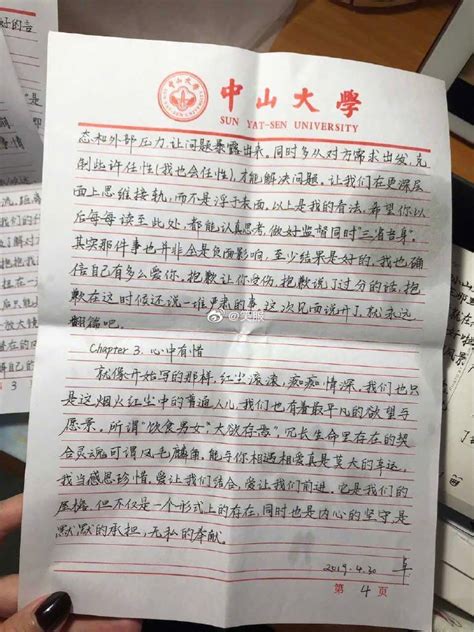 中山大学
SUN YAT-SEN UNIVERSITY
态和外部压力,让问题暴露出来,同时多从对方需求出发,克
制些许任性(我也会任性),才能解决问题,让我们在更深层
面上思维接轨,而不是浮于表面,以上是我的看法,希望你以
后每每读至此处,都能认真思考,做好监督同时"三省吾身"。
其实那件事也并非全是负面影响,至少结果是好的,我也确
信自己有多么爱你,抱歉让你受伤,抱歉说了过分的话,抱
歉在这时候还说一堆 的事,这次见面说开了,就永远
翻篇吧。
Chapter 3. 心中有惜
就像开始写的那样,红尘滚滚,痴痴情深,我们也只
是这烟火红尘中的普通人儿,我们也有着最平凡的欲望与
愿景,所谓"饮食男女""大欲存焉",冗长生命里存在的契
合灵魂可谓凤毛麟角,能与你相遇相爱真是莫大的幸运,
我当感恩珍惜。爱让我们结合,爱让我们前进。它是我们的
屋檐,但不仅是一个形式上的存在,同时也是内心的坚守,是
默默的承担,无私的奉献。
2019.4.30
第 4 页